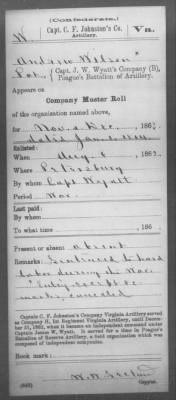 (Confederate.)
W Capt. C. F. Johnston's Co., Va.
Artillery.
Andrew Wilson
Pvt., { Capt. J. W. Wyatt's Company (B),
Poague's Battalion of Artillery.
Appears on
Company Muster Roll
of the organization named above,
for Nov. & Dec., 186
dated Jan
Enlisted:
When Aug. 8, 186
Where Petersburg
By whom Capt Wyatt
Period War
Last paid:
By whom
To what time , 186
Present or absent absent
Remarks: Sentenced to hard
labor during the War.
"Entry except re-
marks, canceled
Captain C. F. Johnston's Company Virginia Artillery served
as Company H, 1st Regiment Virginia Artillery, until Decem-
ber 31, 1862, when it became an independent command under
Captain James W. Wyatt. It served for a time in Poague's
Battalion of Reserve Artillery, a field organization which was
composed of independent companies.
Book mark:
(642) Copyist.